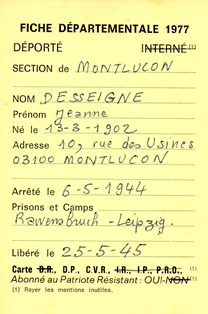 FICHE DÉPARTEMENTALE 1977
DÉPORTÉ INTERNÉ (1)
SECTION de MONTLUCON
NOM DESSEIGNE
Prénom Jeanne
Né le 13-3-1902
Adresse 10, rue des Usines
03100 MONTLUCON
Arrêté le 6-5-1944
Prisons et Camps
Rawensbruch - Leipzig.
Libéré le 25-5-45
Carte D.R., D.P., C.V.R., I.R., I.P., P.R.O., (1)
Abonné au Patriote Résistant : OUI-NON (1)
(1) Rayer les mentions inutiles.